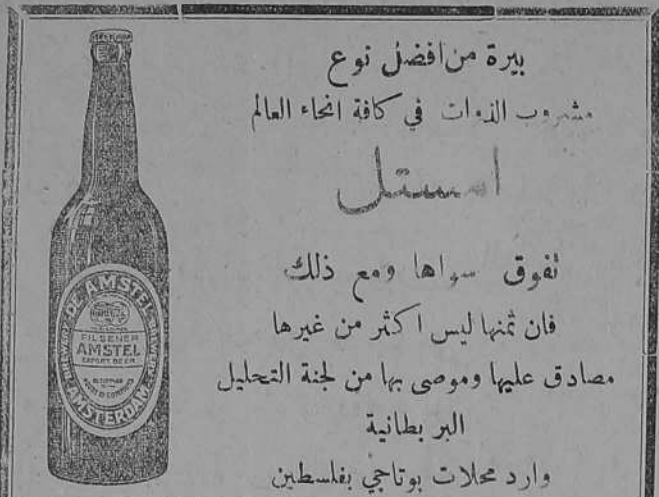 بيرة من افضل نوع
مشروب الذوات في كافة انحاء العالم
امستل
تفوق سواها ومع ذلك
فان ثمنها ليس اكثر من غيرها
مصادق عليها وموصى بها من لجنة التحليل
البريطانية
وارد محلات بوتاجي بفلسطين
DE AMSTEL
BREWERY
PILSENER
AMSTEL
EXPORT BEER
AMSTERDAM